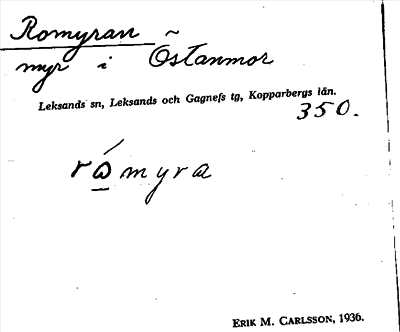 Romyran ~
myr i Östanmor
Leksands sn, Leksands och Gagnefs tg, Kopparbergs län.
350.
rómyra
ERIK M. CARLSSON, 1936.